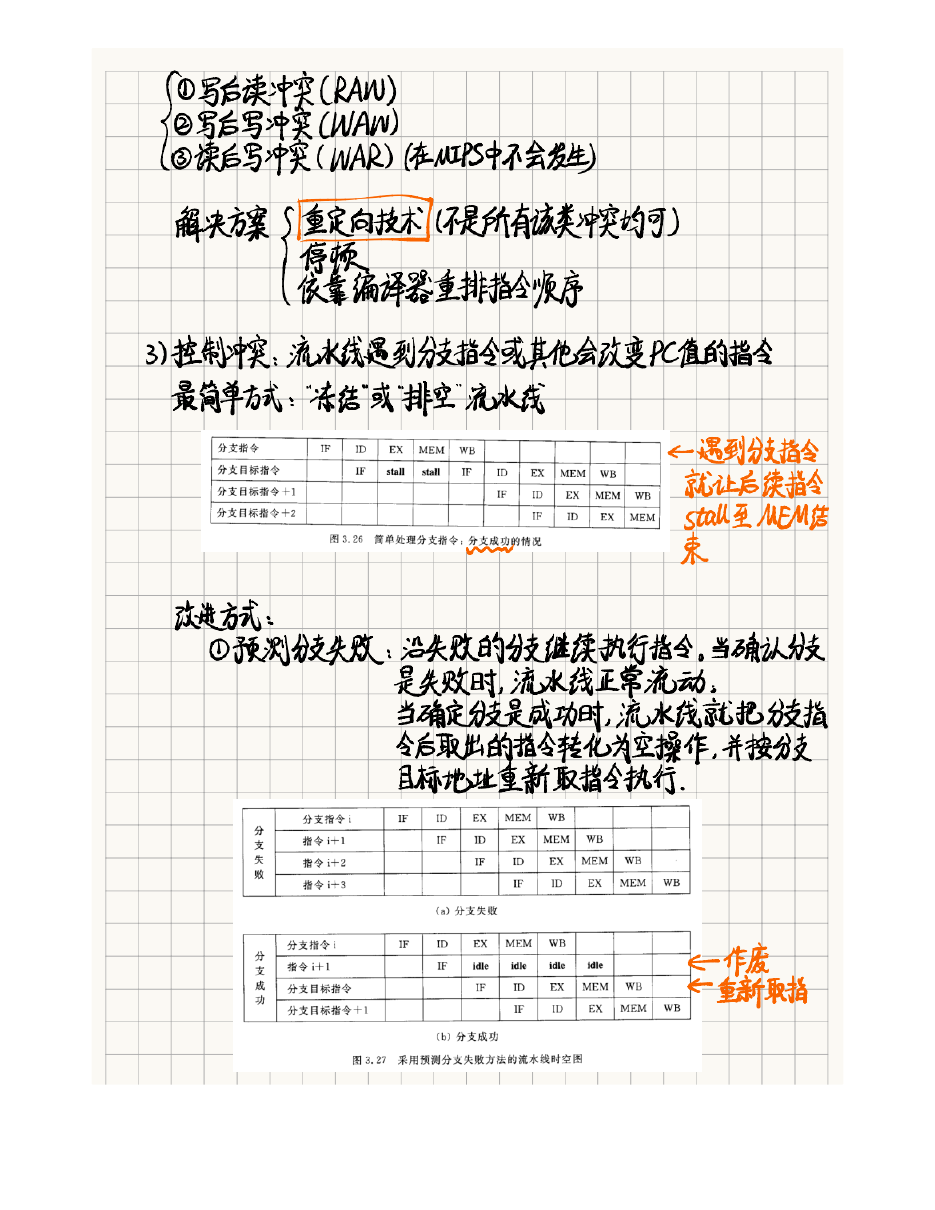 ①写后读冲突(RAW)
②写后写冲突(WAW)
③读后写冲突(WAR)(在MIPS中不会发生)
解决方案
重定向技术(不是所有该类冲突均可)
停顿
依靠编译器重排指令顺序
3)控制冲突:流水线遇到分支指令或其他会改变PC值的指令
最简单方式:"冻结"或"排空"流水线
分支指令 IF ID EX MEM WB
分支目标指令 IF stall stall IF ID EX MEM WB
分支目标指令+1 IF ID EX MEM WB
分支目标指令+2 IF ID EX MEM
图3.26 简单处理分支指令:分支成功的情况
←遇到分支指令
就让后续指令
stall至MEM结
束
改进方式:
①预测分支失败:沿失败的分支继续执行指令。当确认分支
是失败时,流水线正常流动;
当确定分支是成功时,流水线就把分支指
令后取出的指令转化为空操作,并按分支
目标地址重新取指令执行.
分支失败
分支指令i IF ID EX MEM WB
指令i+1 IF ID EX MEM WB
指令i+2 IF ID EX MEM WB
指令i+3 IF ID EX MEM WB
(a) 分支失败
分支成功
分支指令i IF ID EX MEM WB
指令i+1 IF idle idle idle idle
←作废
分支目标指令 IF ID EX MEM WB
←重新取指
分支目标指令+1 IF ID EX MEM WB
(b) 分支成功
图3.27 采用预测分支失败方法的流水线时空图